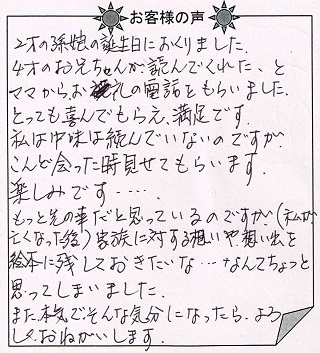 お客様の声
2才の孫娘の誕生日におくりました。
4才のお兄ちゃんが読んでくれた、と
ママからお礼の電話をもらいました。
とっても喜んでもらえ、満足です。
私は中味は読んでいないのですが
こんど会った時見せてもらいます。
楽しみです……。
もっと先の事だと思っているのですが(私が
亡くなった後)家族に対する想いや想い出を
絵本に残しておきたいな…なんてちょっと
思ってしまいました。
また、本気で、そんな気分になったら、よろ
しくおねがいします。